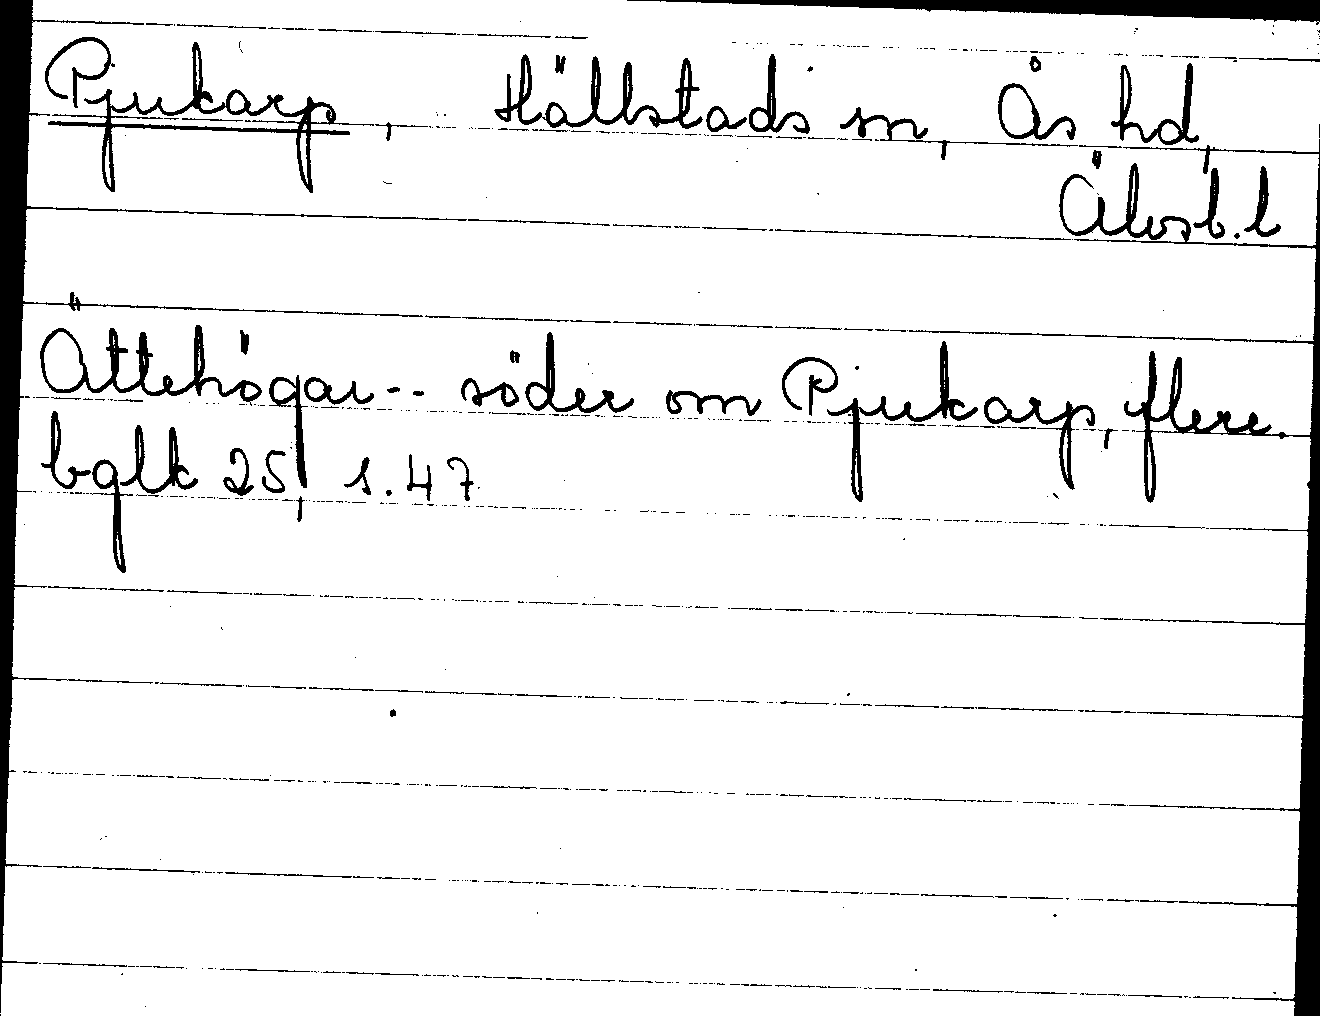 Pjukarp, Hällstads sn, Ås hd,
Älvsb.l
Ättehögar-- söder om Pjukarp, flere.
bglk 25, s.47